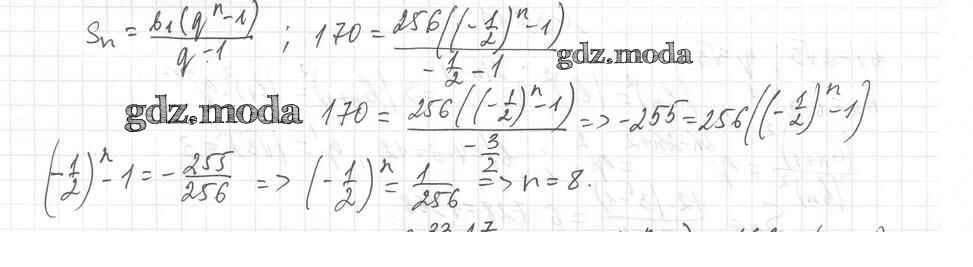 Sn = b1(q^n-1)/(q-1) ; 170 = 256((-1/2)^n-1)/(-1/2-1)
gdz.moda
gdz.moda 170 = 256((-1/2)^n-1)/(-3/2) => -255=256((-1/2)^n-1)
(-1/2)^n-1=-255/256 => (-1/2)^n=1/256 => n=8.